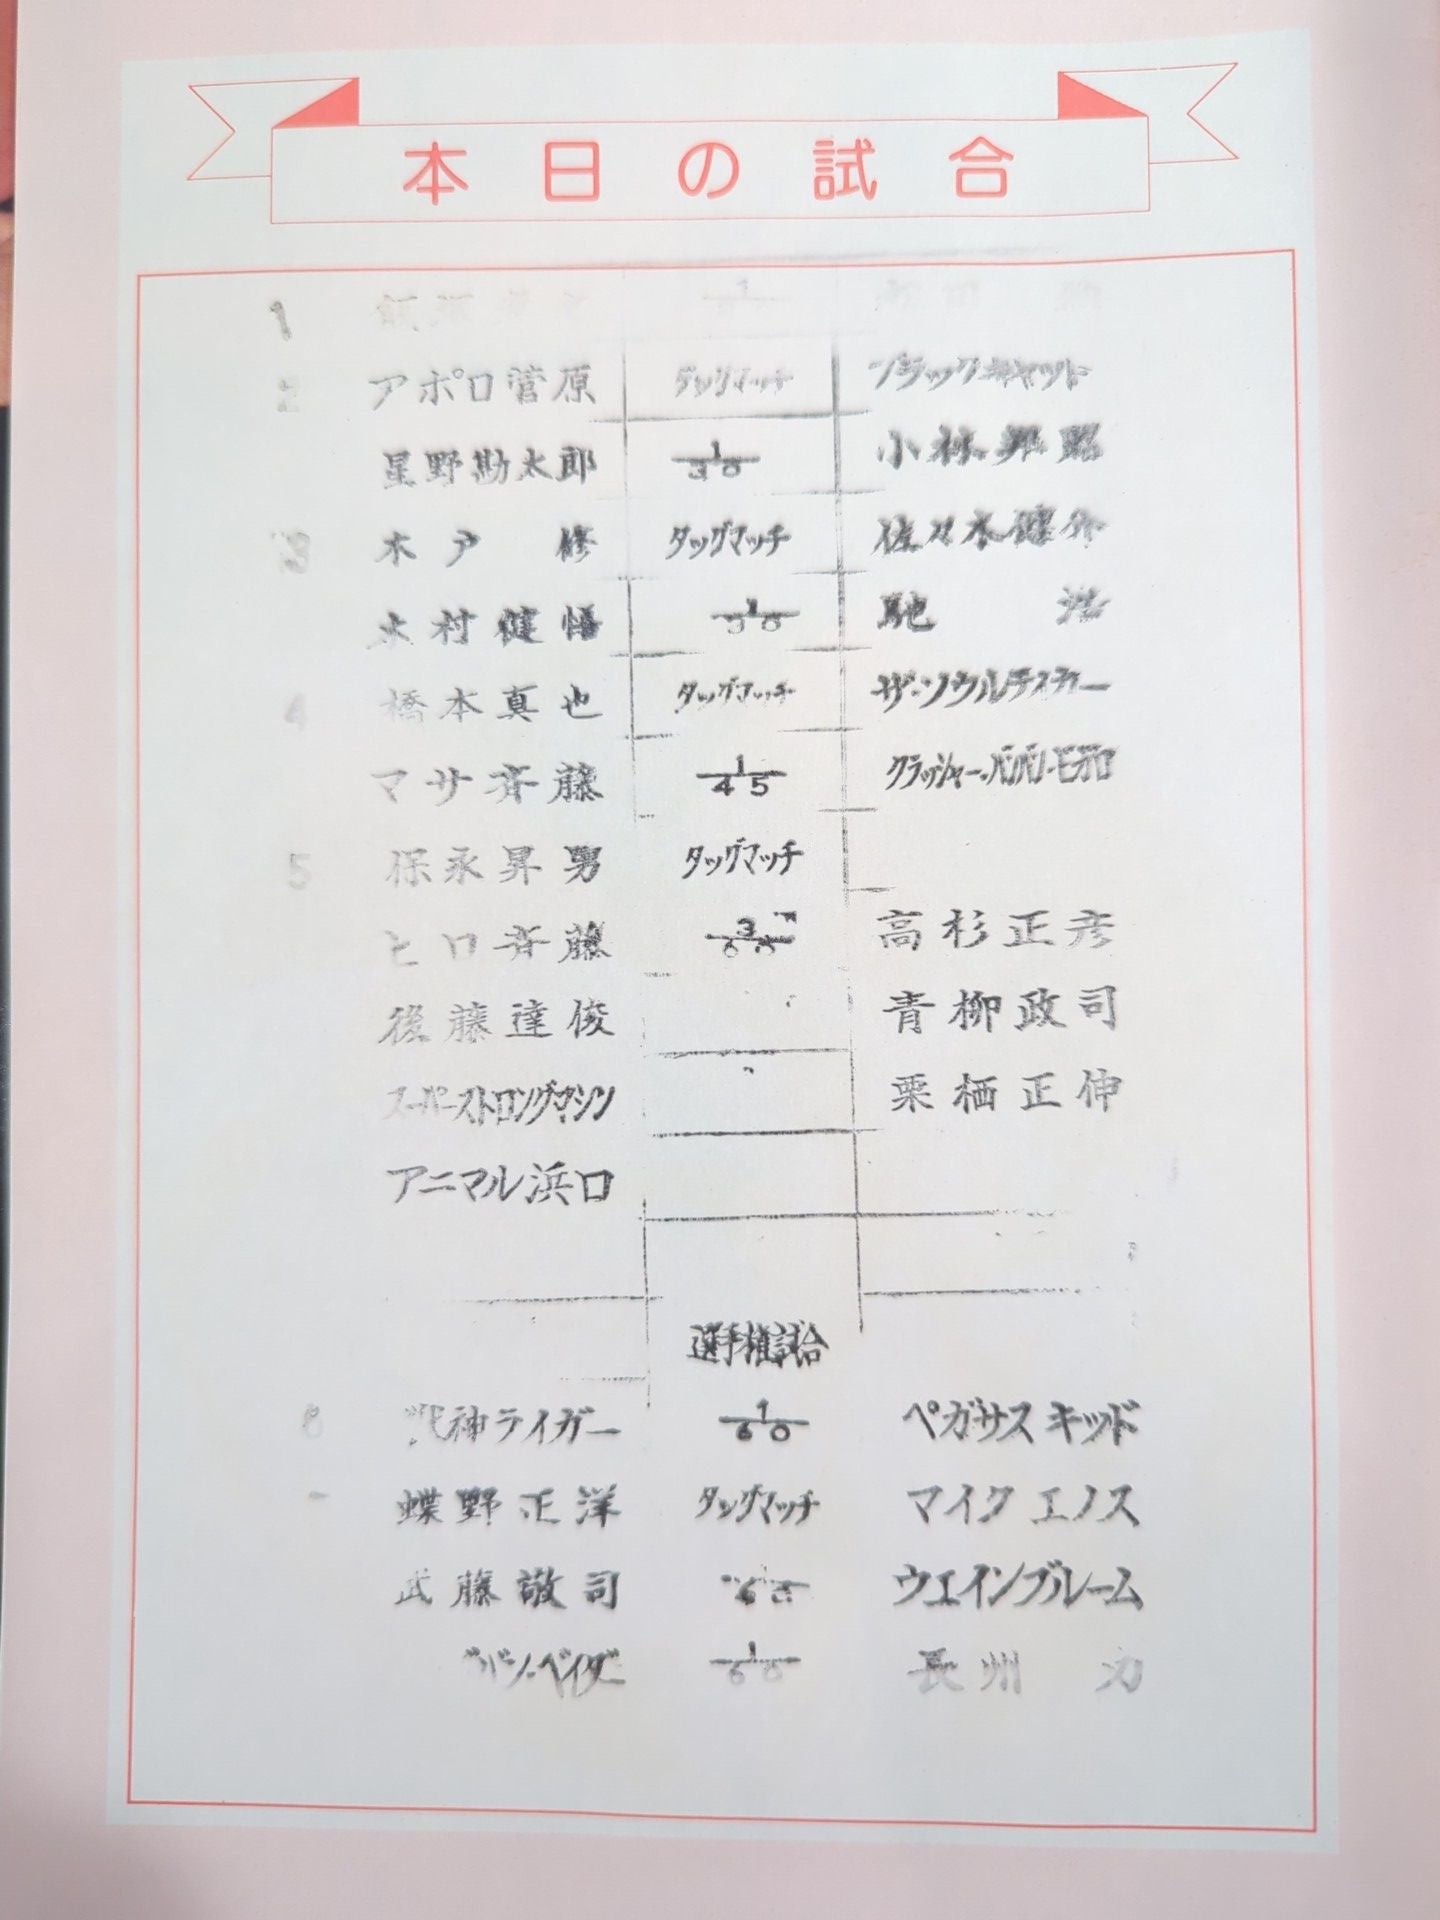 本日の試合
1
2 アポロ菅原 タッグマッチ ブラックキャット
星野勘太郎 1/30 小林邦昭
3 木戸修 タッグマッチ 佐々木健介
木村健悟 1/30 馳浩
4 橋本真也 タッグマッチ ザ・ソウルテイカー
マサ斉藤 1/45 クラッシャー・バンバン・ビガロ
5 保永昇男 タッグマッチ
ヒロ斉藤 3/60 高杉正彦
後藤達俊 青柳政司
スーパーストロングマシン 栗栖正伸
アニマル浜口
選手権試合
6 獣神ライガー 1/60 ペガサスキッド
蝶野正洋 タッグマッチ マイクエノス
武藤敬司 ウエインブルーム
ベイダー 1/60 長州力